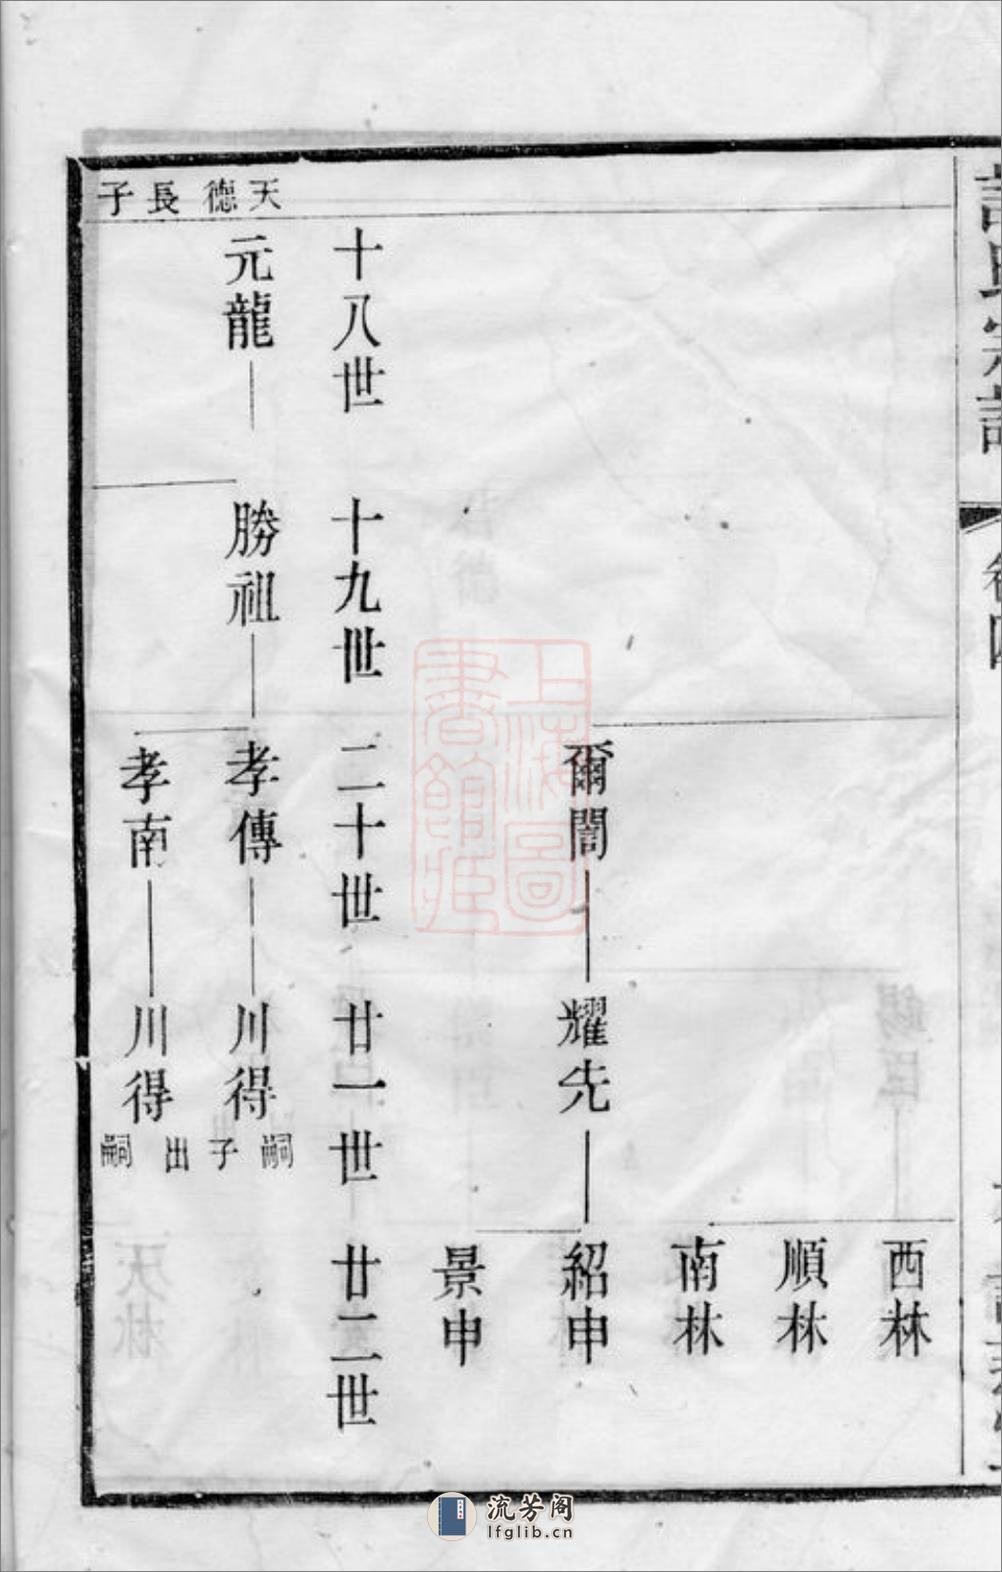 西林
順林
南林
爾誾
耀先
紹申
景申
十八世
十九世
二十世
廿一世
廿二世
天德長子
元龍
勝祖
孝傳
川得
嗣子
孝南
川得
出嗣
卷四
上海圖
書館藏
流芳阁
lfglib.cn